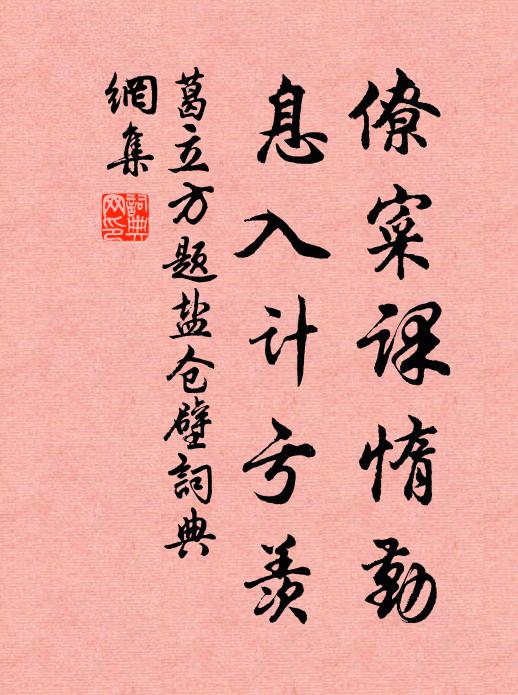 僚寀课惰勤
息入计亏羡
葛立方题盐仓壁詞典
網集
詞典
网印